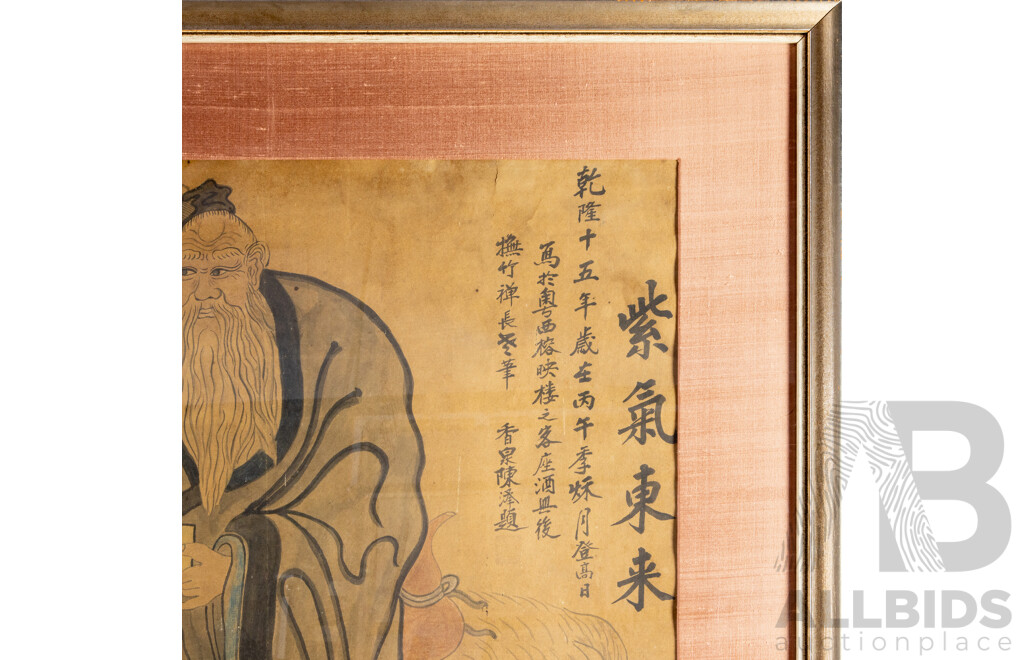 紫氣東来
乾隆十五年歲在丙午季秌月登高日
寫於粵西榕映楼之客座酒興後
撫竹禅長老筆
香泉陳澤題
AB
ALLBIDS
auctionplace